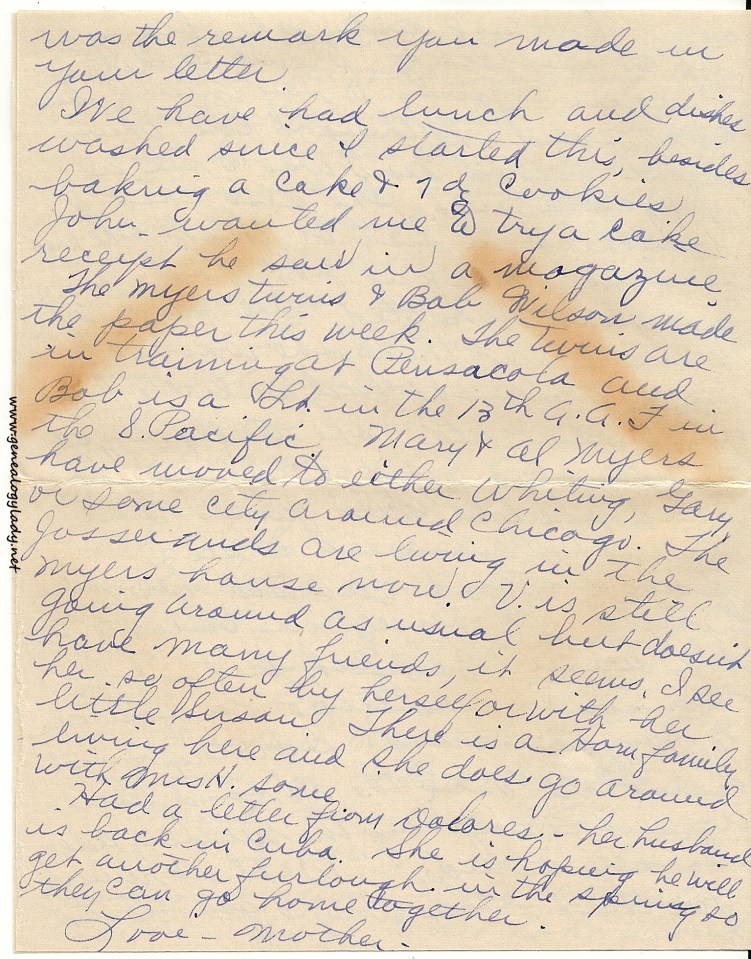 was the remark you made in
your letter.
We have had lunch and dishes
washed since I started this, besides
baking a cake & 7 dz cookies.
John - wanted me to try a cake
receipt he saw in a magazine
The Myers twins & Bob Wilson made
the paper this week. The twins are
in training at Pensacola and
Bob is a Lt. in the 13th A.A.F in
the S. Pacific. Mary & Al Myers
have moved to either Whiting, Gary,
or some city around Chicago. The
Josserands are living in the
Myers house now. V. is still
going around as usual but doesn't
have many friends, it seems. I see
her so often by herself or with her
little Susan. There is a Horn family
living here and she does go around
with Mrs H. some.
Had a letter from Dolores - her husband
is back in Cuba. She is hoping he will
get another furlough in the spring so
they can go home together.
Love - Mother -
www.genealogylady.net